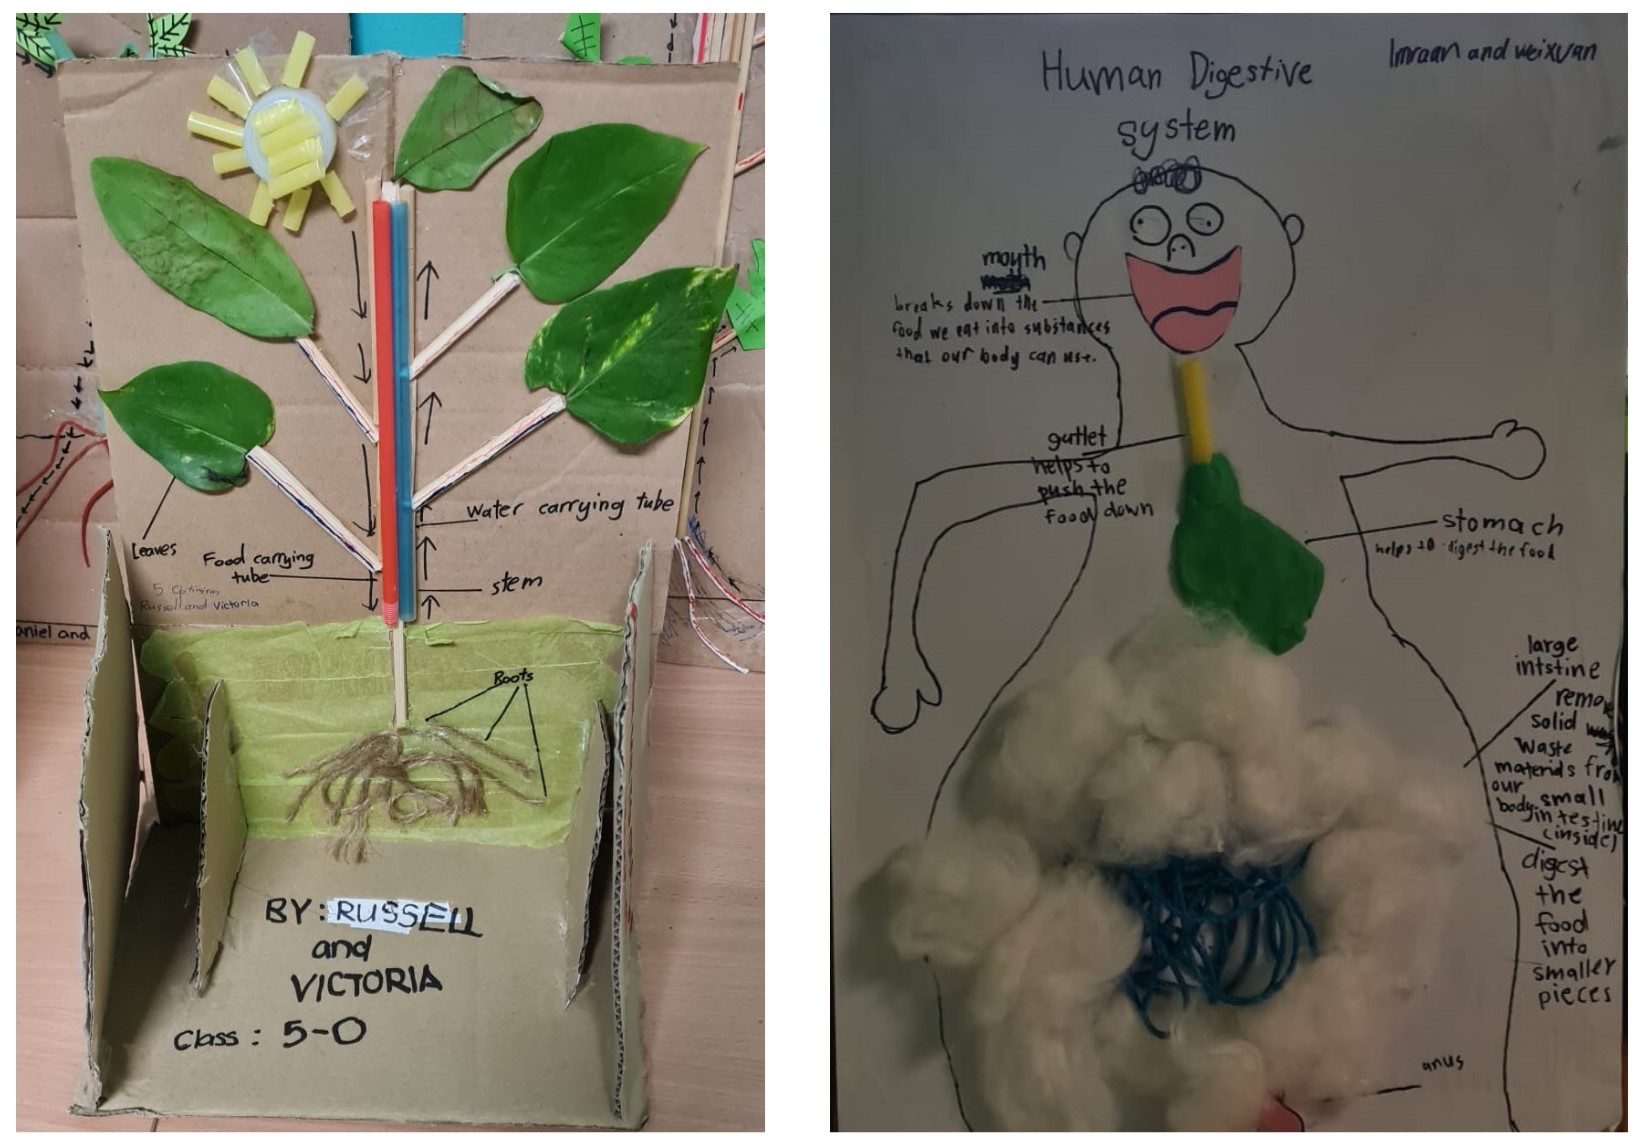 Leaves
Food carrying
tube
5 Optimism
Russell and Victoria
water carrying tube
stem
aniel and
Roots
BY: RUSSELL
and
VICTORIA
Class: 5-0
Human Digestive
system
Imraan and weixuan
mouth
breaks down the
food we eat into substances
that our body can use.
gutlet
helps to
push the
food down
stomach
helps to digest the food
large
intstine
remo
solid
waste
materials fro
our
body.
small
intestine
(inside)
digest
the
food
into
smaller
pieces
anus